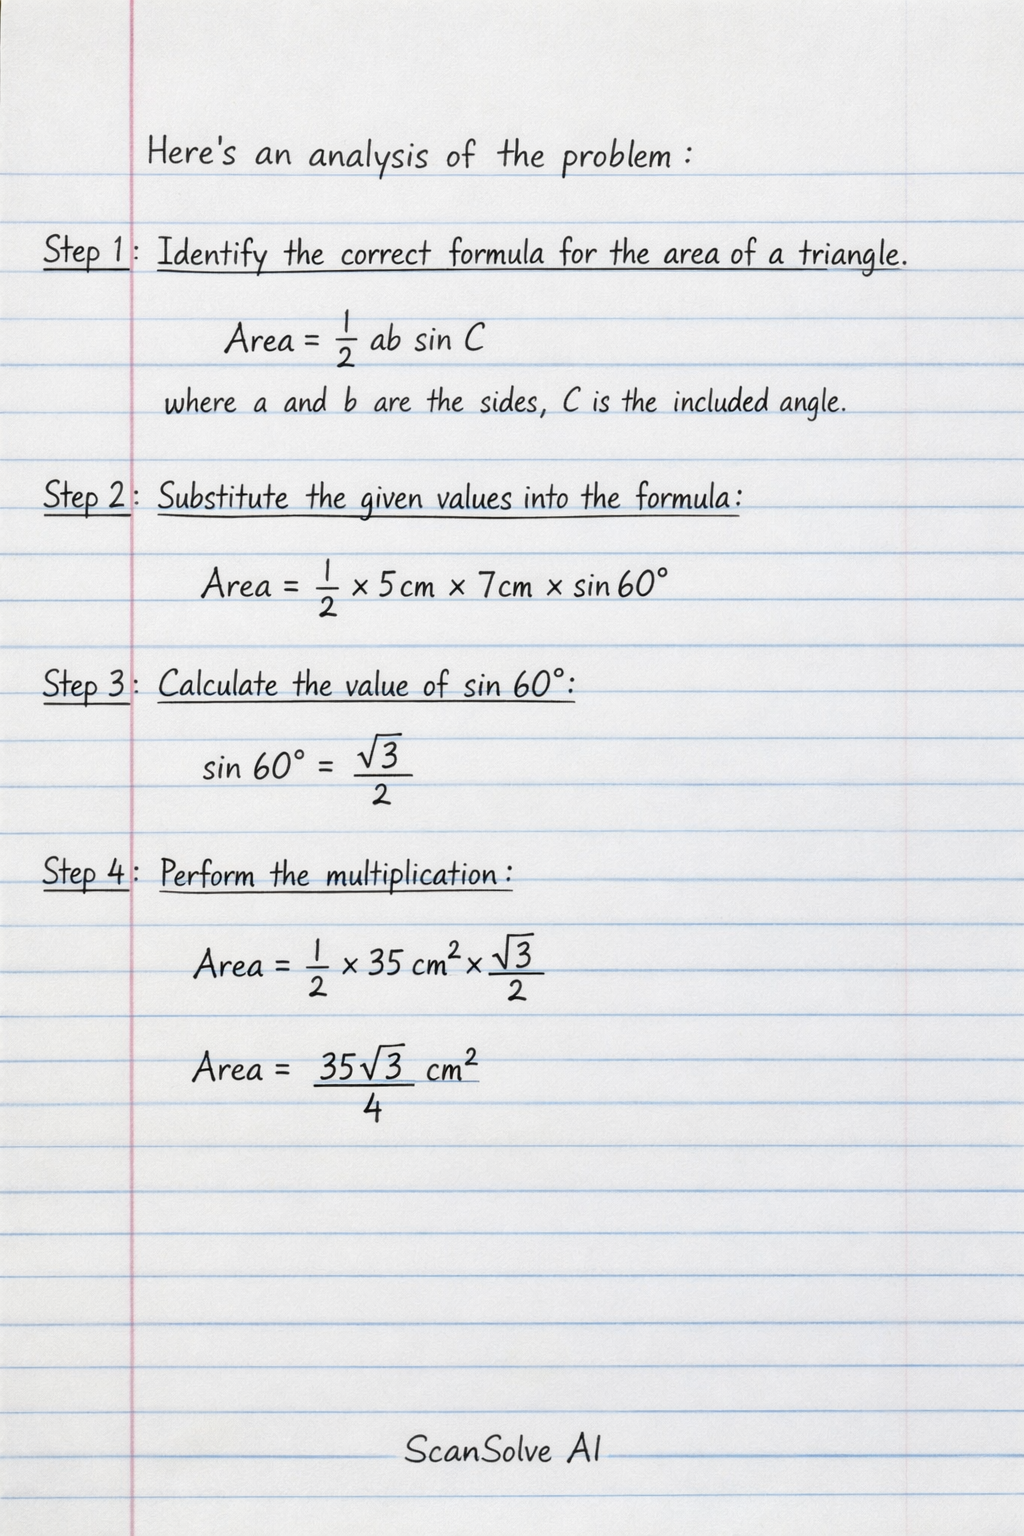 Here's an analysis of the problem :
Step 1: Identify the correct formula for the area of a triangle.
Area = 1/2 ab sin C
where a and b are the sides, C is the included angle.
Step 2: Substitute the given values into the formula:
Area = 1/2 × 5cm × 7cm × sin 60°
Step 3: Calculate the value of sin 60°:
sin 60° = √3/2
Step 4: Perform the multiplication:
Area = 1/2 × 35 cm² × √3/2
Area = 35√3/4 cm²
ScanSolve AI